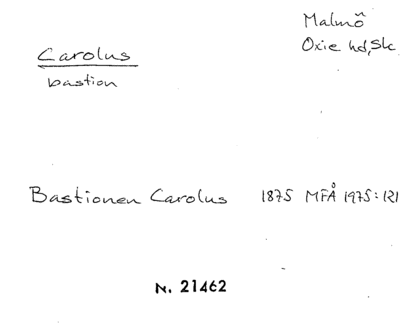 Carolus
bastion
Malmö
Oxie hd, Sk
Bastionen Carolus 1875 MFÅ 1975:121
N. 21462